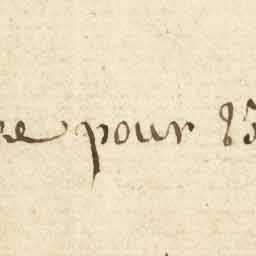 re pour 85